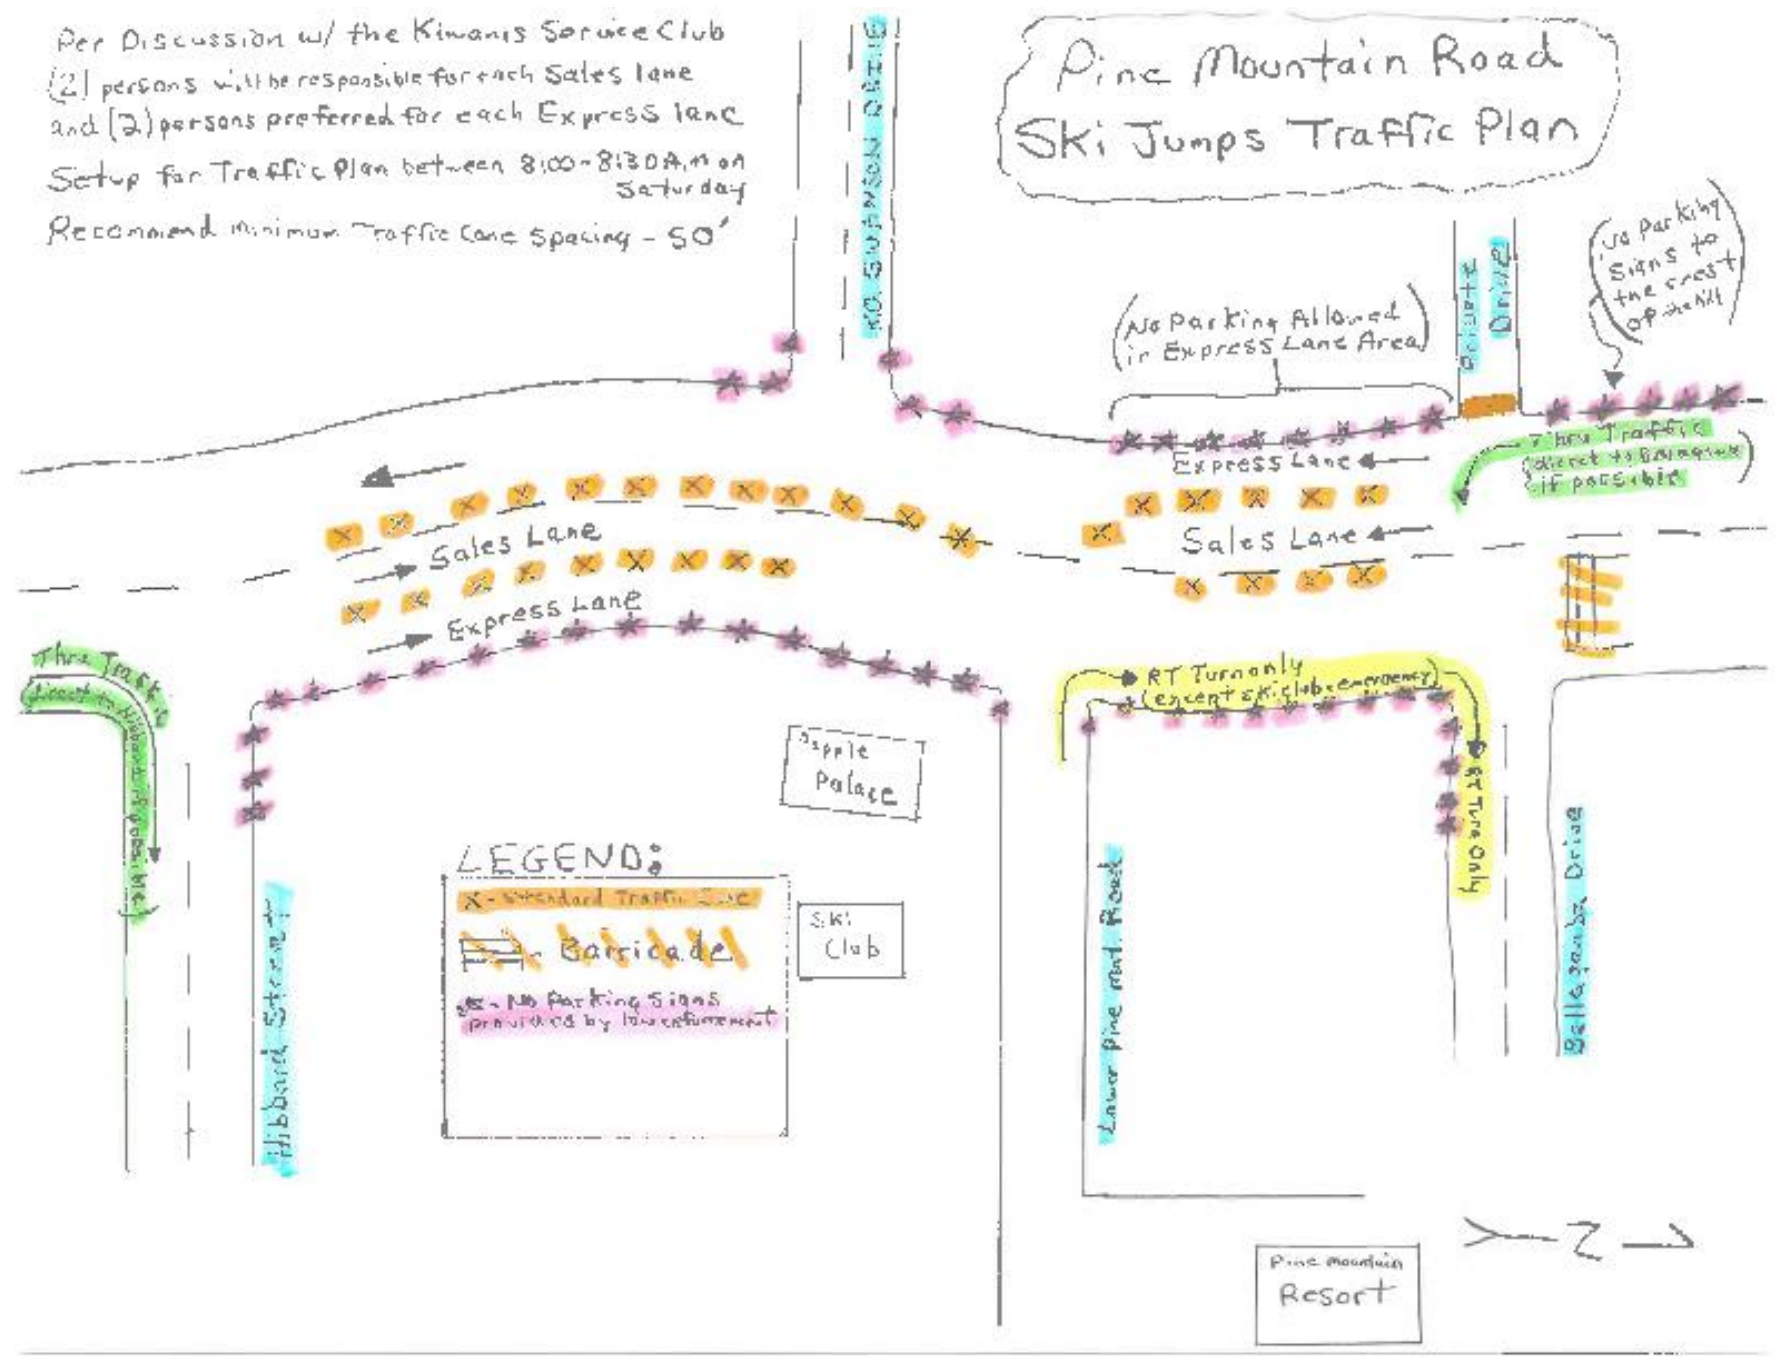 Per Discussion w/ the Kiwanis Service Club
(2) persons will be responsible for each Sales lane
and (2) persons preferred for each Express lane
Setup for Traffic Plan between 8:00-8:30 A.M on
Saturday
Recommend minimum Traffic Cone Spacing - 50'
KO. SWANSON DRIVE
Pine Mountain Road
Ski Jumps Traffic Plan
(No Parking Allowed
in Express Lane Area)
Private
Drive
(No Parking
Signs to
the crest
of the hill)
Thru Traffic
(direct to
if possible)
Express Lane
Sales Lane
Sales Lane
Express Lane
Thru Traffic
(direct to Hibbard if possible)
RT Turn only
(except ski club & emergency)
RT Turn Only
Palace
LEGEND:
X - Standard Traffic Cone
- Barricade
- No Parking Signs
provided by law enforcement
Ski
Club
Hibbard Street
Lower Pine mnt. Road
Bellagamba Drive
Pine mountain
Resort